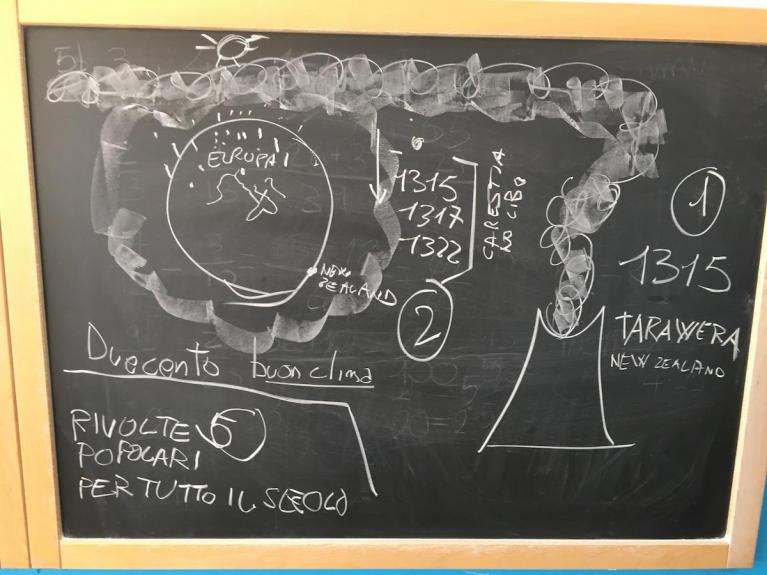 EUROPA
NEW
ZEALAND
1315
1317
1322
CARESTIA
NO CIBO
2
1
1315
TARAWERA
NEW ZEALAND
Duecento buon clima
RIVOLTE 5
POPOLARI
PER TUTTO IL SECOLO